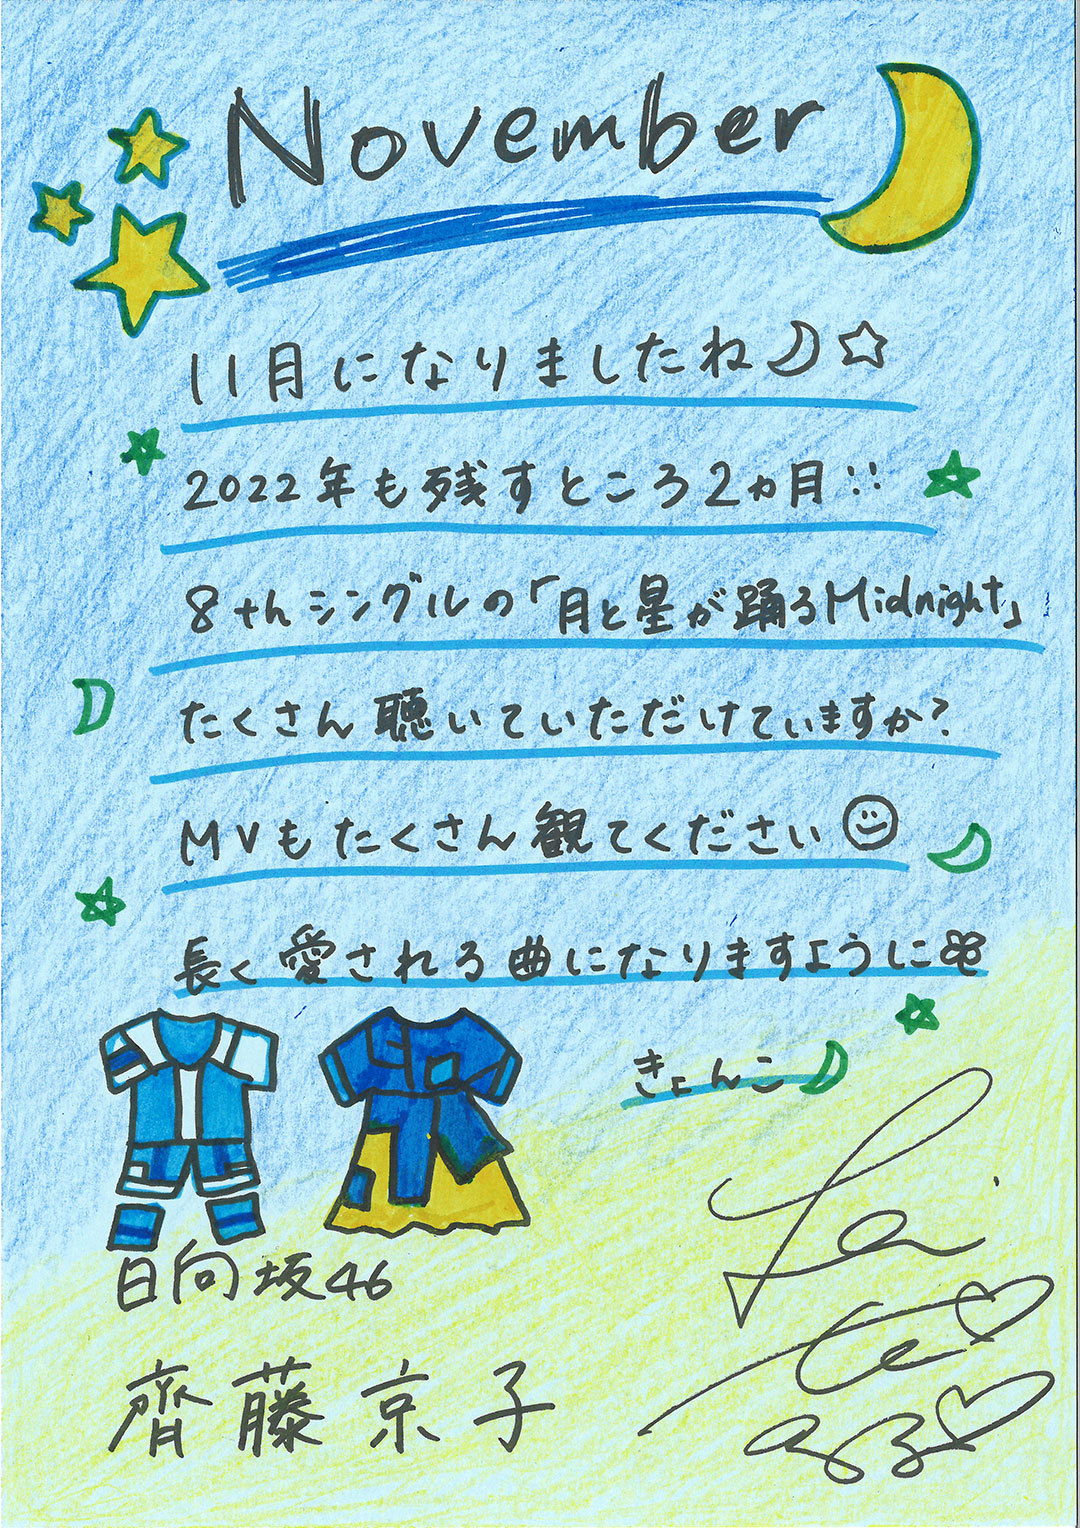 November
11月になりましたね
2022年も残すところ2ヵ月!!
8thシングルの「月と星が踊るMidnight」
たくさん聴いていただけていますか?
MVもたくさん観てください
長く愛される曲になりますように
きょんこ
日向坂46
齊藤京子